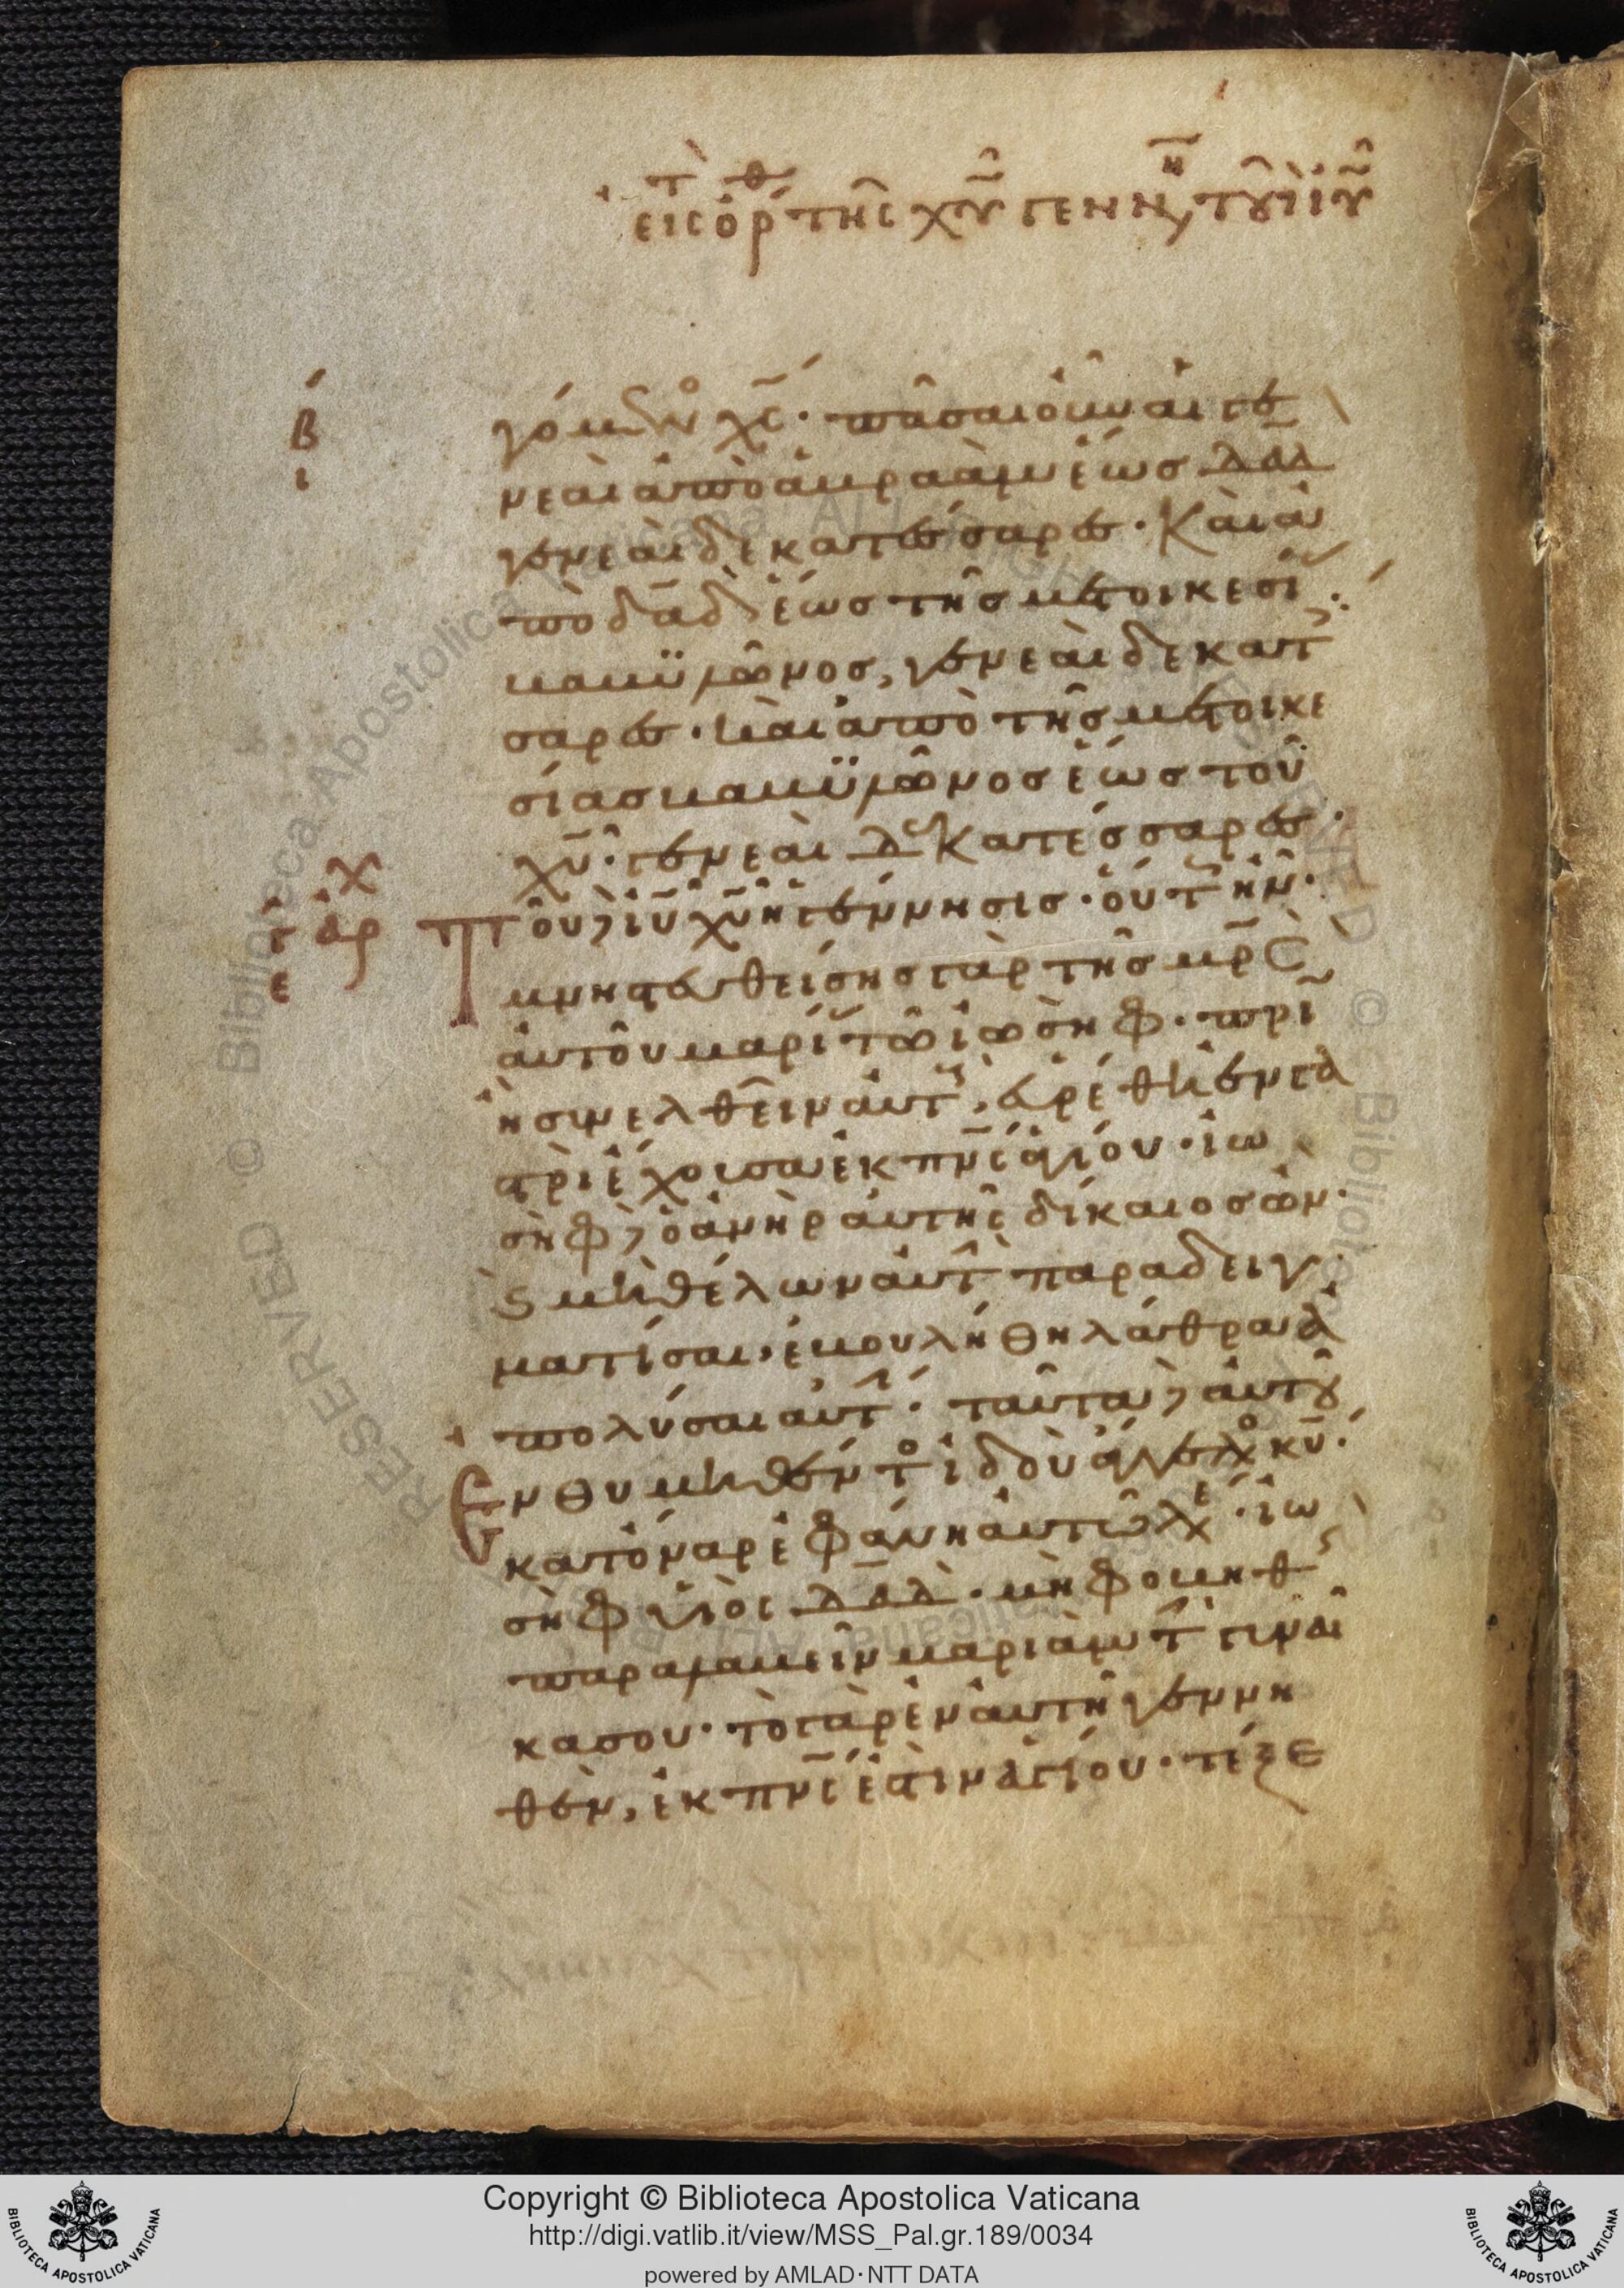 εις ὁρ τὴς χυ γενν τοῦ ιυ
β
ι
γόμενος χς· πᾶσαι οὖν αἱ γε
νεαὶ ἀπὸ ἀβραὰμ ἕως δαδ
γενεαὶ δεκατέσσαρες· καὶ ἀ
πὸ δαδ ἕως τῆς μετοικεσί
βαβυλῶνος, γενεαὶ δεκατέσ
σαρες· καὶ ἀπὸ τῆς μετοικε
σίας βαβυλῶνος ἕως τοῦ
χυ· γενεαὶ δεκατέσσαρες·
Τοῦ δὲ ιυ χυ ἡ γέννησις· οὕτ ἦν·
μνηστευθείσης γὰρ τῆς μρς
αὐτοῦ μαρί τῶ ἰωσὴφ· πρὶν
ἢ συνελθεῖν αὐτ, εὑρέθη ἐν γα
στρὶ ἔχουσα ἐκ πνς ἁγίου· ἰω
σὴφ δὲ ὁ ἀνὴρ αὐτῆς δίκαιος ὢν·
καὶ μὴ θέλων αὐτ παραδειγ
ματίσαι, ἐβουλήθη λάθρα ἀ
πολύσαι αὐτ· ταῦτα δὲ αὐτοῦ
Ενθυμηθέντο ἰδοὺ ἄγγελο κυ·
κατ' ὄναρ ἐφάνη αὐτῶ λέ· ἰω
σὴφ υἱὸς δαδ· μὴ φοβηθ
παραλαβεῖν μαριὰμ τ γυναῖ
κα σου· τὸ γὰρ ἐν αὐτῆ γεννη
θὲν, ἐκ πνς ἐστιν ἁγίου· τέξε
χ
αρ
τ
ε
Copyright © Biblioteca Apostolica Vaticana
http://digi.vatlib.it/view/MSS_Pal.gr.189/0034
powered by AMLAD·NTT DATA
BIBLIOTECA APOSTOLICA VATICANA
BIBLIOTECA APOSTOLICA VATICANA